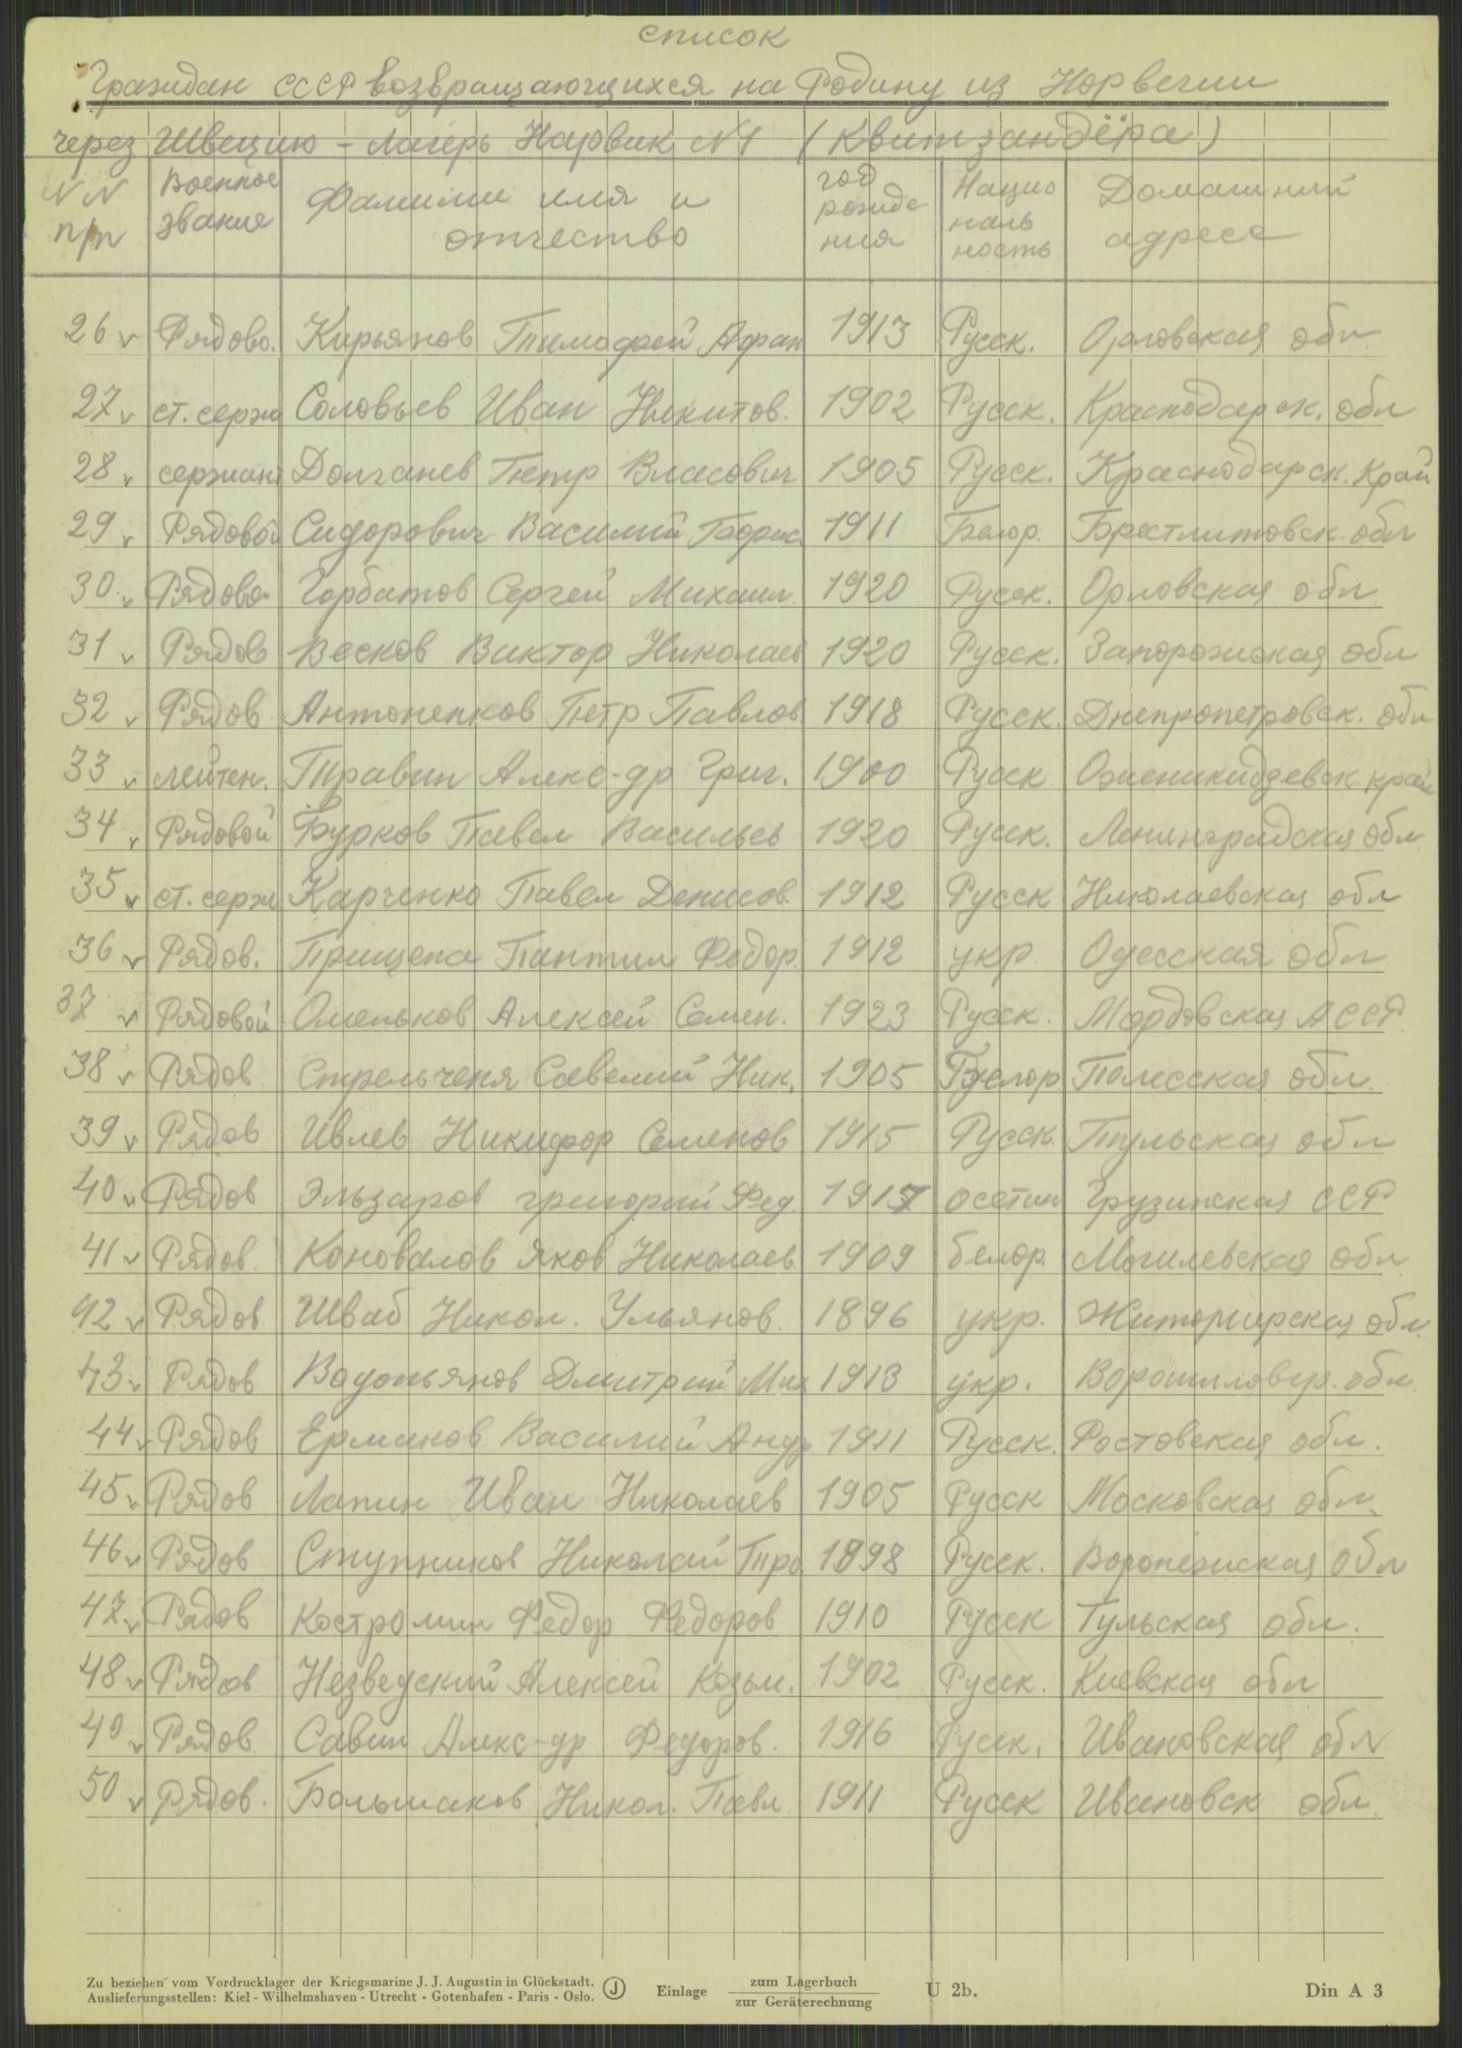 список
Граждан СССР возвращающихся на Родину из Норвегии
через Швецию - Лагерь Нарвик N1 (Квитзандёра)
NN п/п Военное звание Фамилия имя и отчество год рождения Национальность Домашний адресс
26 v Рядово. Кирьянов Тимофей Афан 1913 Русск. Орловская обл
27 v ст. серж Соловьев Иван Никитов. 1902 Русск. Краснодарск. обл
28 v сержант Долганев Петр Власович 1905 Русск. Краснодарск. Край
29 v Рядовой Сидорович Василий Борис. 1911 Белор. Брестлитовск. обл
30 v Рядово Горбатов Сергей Михаил. 1920 Русск. Орловская обл
31 v Рядов Весков Виктор Николаев 1920 Русск. Запорожская обл
32 v Рядов Антоненков Петр Павлов 1918 Русск. Днепропетровск. обл
33 v лейтен. Травин Алекс-др Григ. 1900 Русск Оженикидзевск край
34 v Рядовой Бурков Павел Васильев 1920 Русск. Ленинградская обл
35 v ст. серж Карченко Павел Денисов. 1912 Русск Николаевская обл
36 v Рядов. Прищепа Пантил Федор. 1912 укр. Одесская обл
37 v Рядовой Омельков Алексей Семен. 1923 Русск. Мордовская АССР.
38 v Рядов Стрельченя Савелий Ник. 1905 Белор Полесская обл.
39 v Рядов Ивлев Никифор Семенов 1915 Русск. Тульская обл
40 v Рядов Эльзаров григорий Фед 1917 осетин Грузинская ССР
41 v Рядов. Коновалов Яков Николаев 1909 белор. Могилевская обл
42 v Рядов Шваб Никол. Ульянов. 1896 укр. Житомирская обл.
43 v Рядов Водопьянов Дмитрий Мих 1913 укр. Ворошиловгр. обл.
44 v Рядов Ермаков Василий Андр 1911 Русск. Ростовская обл.
45 v Рядов Лапин Иван Николаев 1905 Русск Московская обл.
46 v Рядов Ступников Николай Тро 1898 Русск. Воронежская обл
47 v Рядов Костромин Федор Федоров 1910 Русск Тульская обл.
48 v Рядов Незведский Алексей Козьм. 1902 Русск. Киевская обл
49 v Рядов Савин Алекс-др Федоров. 1916 Русск. Ивановская обл
50 v рядов. Большаков Никол. Павл 1911 Русск Ивановск обл.
Zu beziehen vom Vordrucklager der Kriegsmarine J. J. Augustin in Glückstadt.
Auslieferungsstellen: Kiel - Wilhelmshaven - Utrecht - Gotenhafen - Paris - Oslo.
J
Einlage zum Lagerbuch
zur Geräterechnung
U 2b.
Din A 3